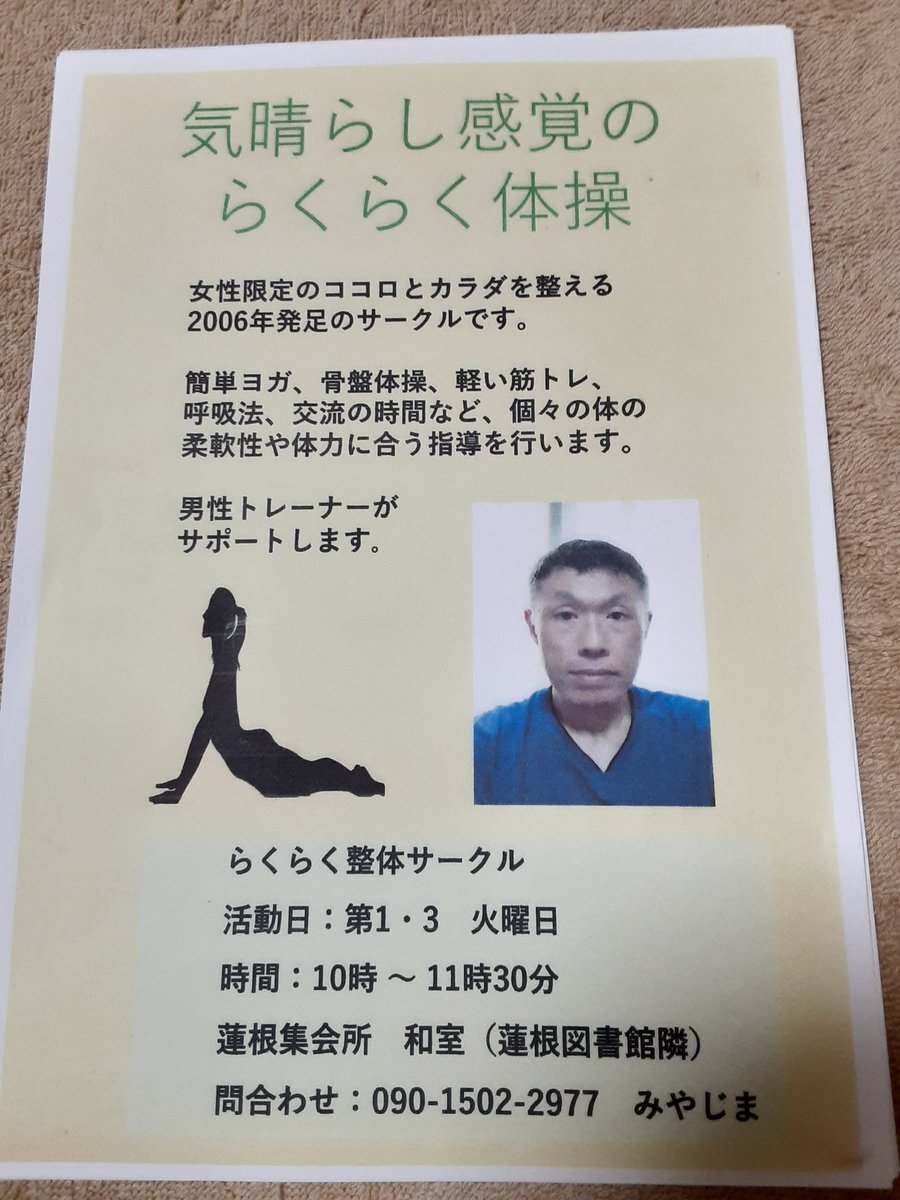 気晴らし感覚の
らくらく体操
女性限定のココロとカラダを整える
2006年発足のサークルです。
簡単ヨガ、骨盤体操、軽い筋トレ、
呼吸法、交流の時間など、個々の体の
柔軟性や体力に合う指導を行います。
男性トレーナーが
サポートします。
らくらく整体サークル
活動日：第1・3　火曜日
時間：10時 〜 11時30分
蓮根集会所　和室（蓮根図書館隣）
問合わせ：090-1502-2977　みやじま